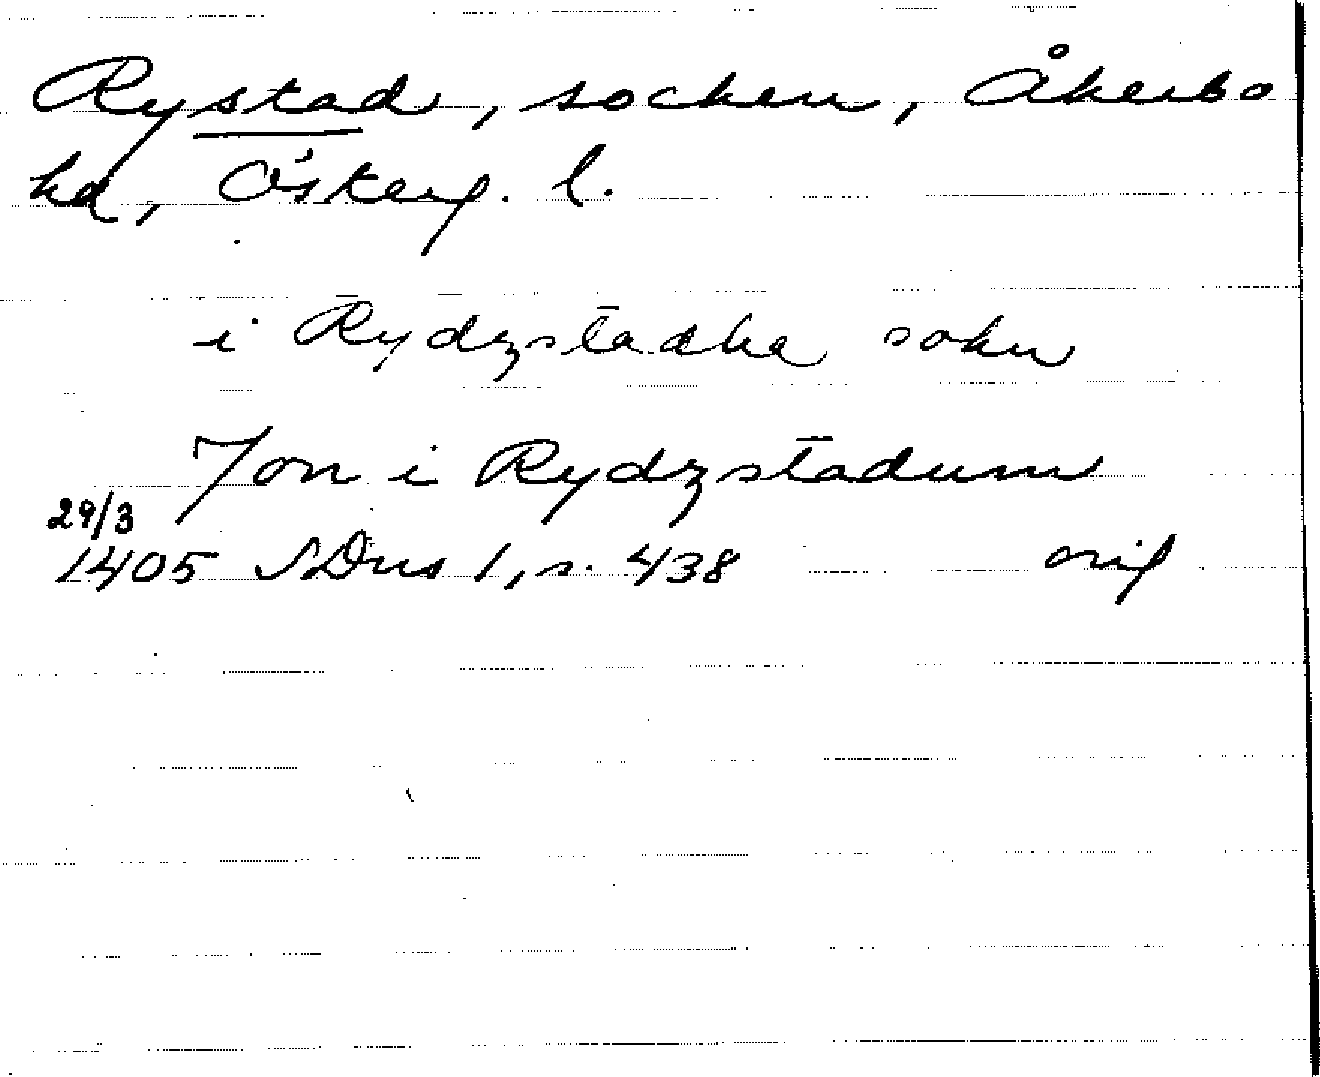 Rystad, socken, Åkerbo
hd, Österg. l.
i Rydzstadha sokn
Jon i Rydzstadum
29/3
1405 SDns 1, s. 438 orig